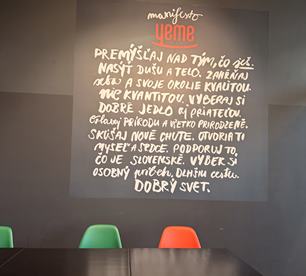 manifesto
yeme
PREMÝŠĽAJ NAD TÝM, ČO ješ.
NASÝŤ DUŠU A TELO. ZAHŔŇAJ
seba A SVOJE OKOLIE KVALITOU.
NIE KVANTITOU. VYBERAJ SI
DOBRÉ JEDLO AJ PRIATEĽOV.
PRÍRODU A VŠETKO PRIRODZENÉ.
SKÚŠAJ NOVÉ CHUTE. OTVOR TO
MYSEĽ A SRDCE. PODPORUJ TO,
ČO JE SLOVENSKÉ. VYBER SI
OSOBNÝ príbeh, DLHŠIU cestu.
DOBRÝ SVET.